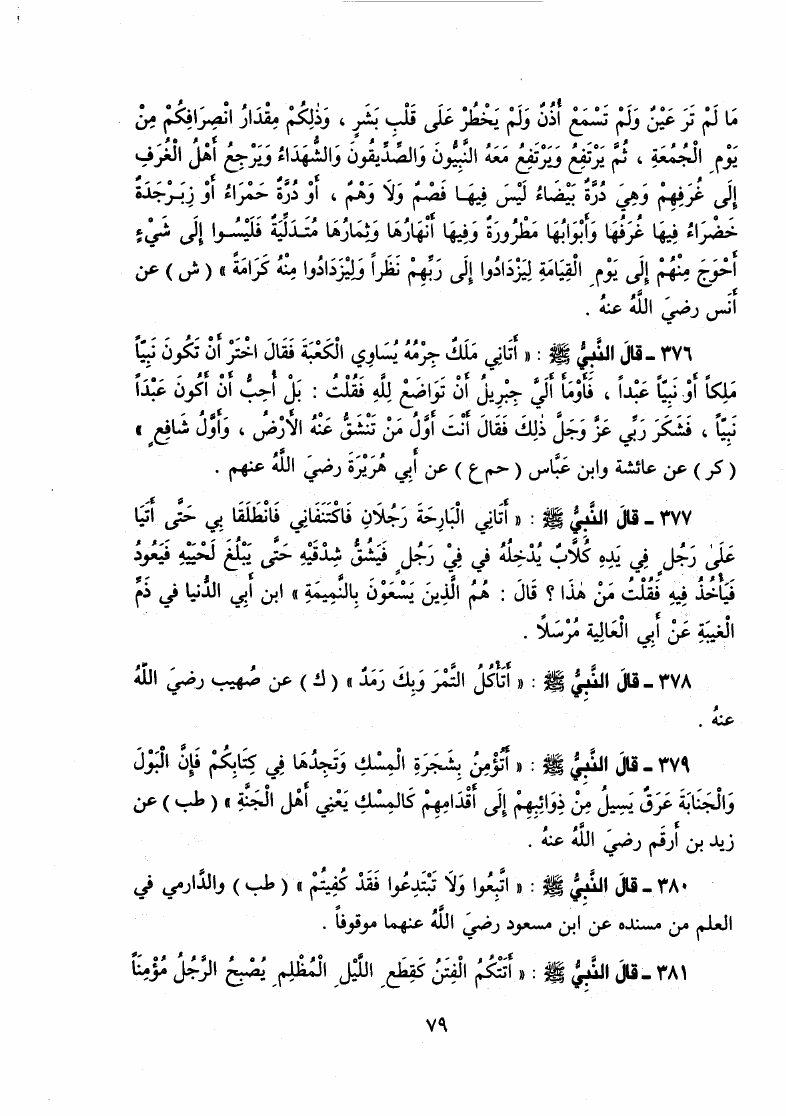 مَا لَمْ تَرَ عَيْنٌ وَلَمْ تَسْمَعْ أُذُنٌ وَلَمْ يَخْطُرْ عَلَى قَلْبِ بَشَرٍ ، وَذٰلِكُمْ مِقْدَارُ انْصِرَافِكُمْ مِنْ
يَوْمِ الْجُمُعَةِ ، ثُمَّ يَرْتَفِعُ وَيَرْتَفِعُ مَعَهُ النَّبِيُّونَ وَالصِّدِّيقُونَ وَالشُّهَدَاءُ وَيَرْجِعُ أَهْلُ الْغُرَفِ
إِلَى غُرَفِهِمْ وَهِيَ دُرَّةٌ بَيْضَاءُ لَيْسَ فِيهَا فَصْمٌ وَلَا وَهْمٌ ، أَوْ دُرَّةٌ حَمْرَاءُ أَوْ زِبَرْجَدَةٌ
خَضْرَاءُ فِيهَا غُرَفُهَا وَأَبْوَابُهَا مَطْرُورَةٌ وَفِيهَا أَنْهَارُهَا وَثِمَارُهَا مُتَدَلِّيَةٌ فَلَيْسُوا إِلَى شَيْءٍ
أَحْوَجَ مِنْهُمْ إِلَى يَوْمِ الْقِيَامَةِ لِيَزْدَادُوا إِلَى رَبِّهِمْ نَظَراً وَلِيَزْدَادُوا مِنْهُ كَرَامَةً » ( ش ) عن
أنس رضيَ اللَّهُ عنهُ .
٣٧٦ ـ قالَ النَّبِيُّ ﷺ : « أَتَانِي مَلَكٌ جِرْمُهُ يُسَاوِي الْكَعْبَةَ فَقَالَ اخْتَرْ أَنْ تَكُونَ نَبِيّاً
مَلِكاً أَوْ نَبِيّاً عَبْداً ، فَأَوْمَأَ أَلَيَّ جِبْرِيلُ أَنْ تَوَاضَعْ لِلَّهِ فَقُلْتُ : بَلْ أُحِبُّ أَنْ أَكُونَ عَبْدَاً
نَبِيّاً ، فَشَكَرَ رَبِّي عَزَّ وَجَلَّ ذٰلِكَ فَقَالَ أَنْتَ أَوَّلُ مَنْ تَنْشَقُّ عَنْهُ الأَرْضُ ، وَأَوَّلُ شَافِعٍ »
( كر ) عن عائشة وابن عَبَّاس ( حم ع ) عن أَبي هُرَيْرَةَ رضيَ اللَّهُ عنهم .
٣٧٧ ـ قالَ النَّبِيُّ ﷺ : « أَتَانِي الْبَارِحَةَ رَجُلَانِ فَاكْتَنَفَانِي فَانْطَلَقَا بِي حَتَّى أَتَيَا
عَلَىٰ رَجُلٍ فِي يَدِهِ كُلَّابٌ يُدْخِلُهُ في فِيْ رَجُلٍ فَيَشُقُّ شِدْقَيْهِ حَتَّى يَبْلُغَ لَحْيَيْهِ فَيَعُودُ
فَيَأْخُذُ فِيهِ فَقُلْتُ مَنْ هٰذَا ؟ قَالَ : هُمُ الَّذِينَ يَسْعَوْنَ بِالنَّمِيمَةِ » ابن أبي الدُّنيا في ذَمِّ
الغِيبَةِ عَنْ أَبي الْعَالِيةِ مُرْسَلاً .
٣٧٨ ـ قالَ النَّبِيُّ ﷺ : « أَتَأْكُلُ التَّمْرَ وَبِكَ رَمَدٌ » ( ك ) عن صُهيب رضيَ اللَّهُ
عنهُ .
٣٧٩ ـ قالَ النَّبِيُّ ﷺ : « أَتُؤْمِنُ بِشَجَرَةِ الْمِسْكِ وَتَجِدُهَا فِي كِتَابِكُمْ فَإِنَّ الْبَوْلَ
وَالْجَنَابَةَ عَرَقٌ يَسِيلُ مِنْ ذِوَائِبِهِمْ إِلَى أَقْدَامِهِمْ كَالمِسْكِ يَعْنِي أَهْلَ الْجَنَّةِ » ( طب ) عن
زيد بن أرقم رضيَ اللَّهُ عنهُ .
٣٨٠ ـ قالَ النَّبِيُّ ﷺ : « اتَّبِعُوا وَلَا تَبْتَدِعُوا فَقَدْ كُفِيتُمْ » ( طب ) والدَّارمي في
العلم من مسنده عن ابن مسعود رضيَ اللَّهُ عنهما موقوفاً .
٣٨١ ـ قالَ النَّبِيُّ ﷺ : « أَتَتْكُمُ الْفِتَنُ كَقِطَعِ اللَّيْلِ الْمُظْلِمِ يُصْبِحُ الرَّجُلُ مُؤْمِنَاً
٧٩